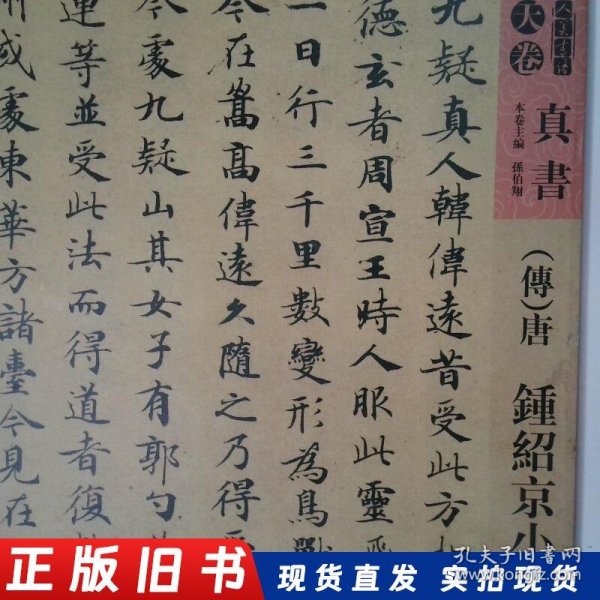 人美書譜
大卷
真書
本卷主編 孫伯翔
(傳)唐 鍾紹京小
九疑真人韓偉遠昔受此方
德玄者周宣王時人服此靈
一日行三千里數變形為鳥獸
今在嵩高偉遠久隨之乃得受
今處九疑山其女子有郭勺
運等並受此法而得道者復
州或處東華方諸臺今見在
正版旧书
现货直发 实拍现货
孔夫子旧书网
www.kongfz.com